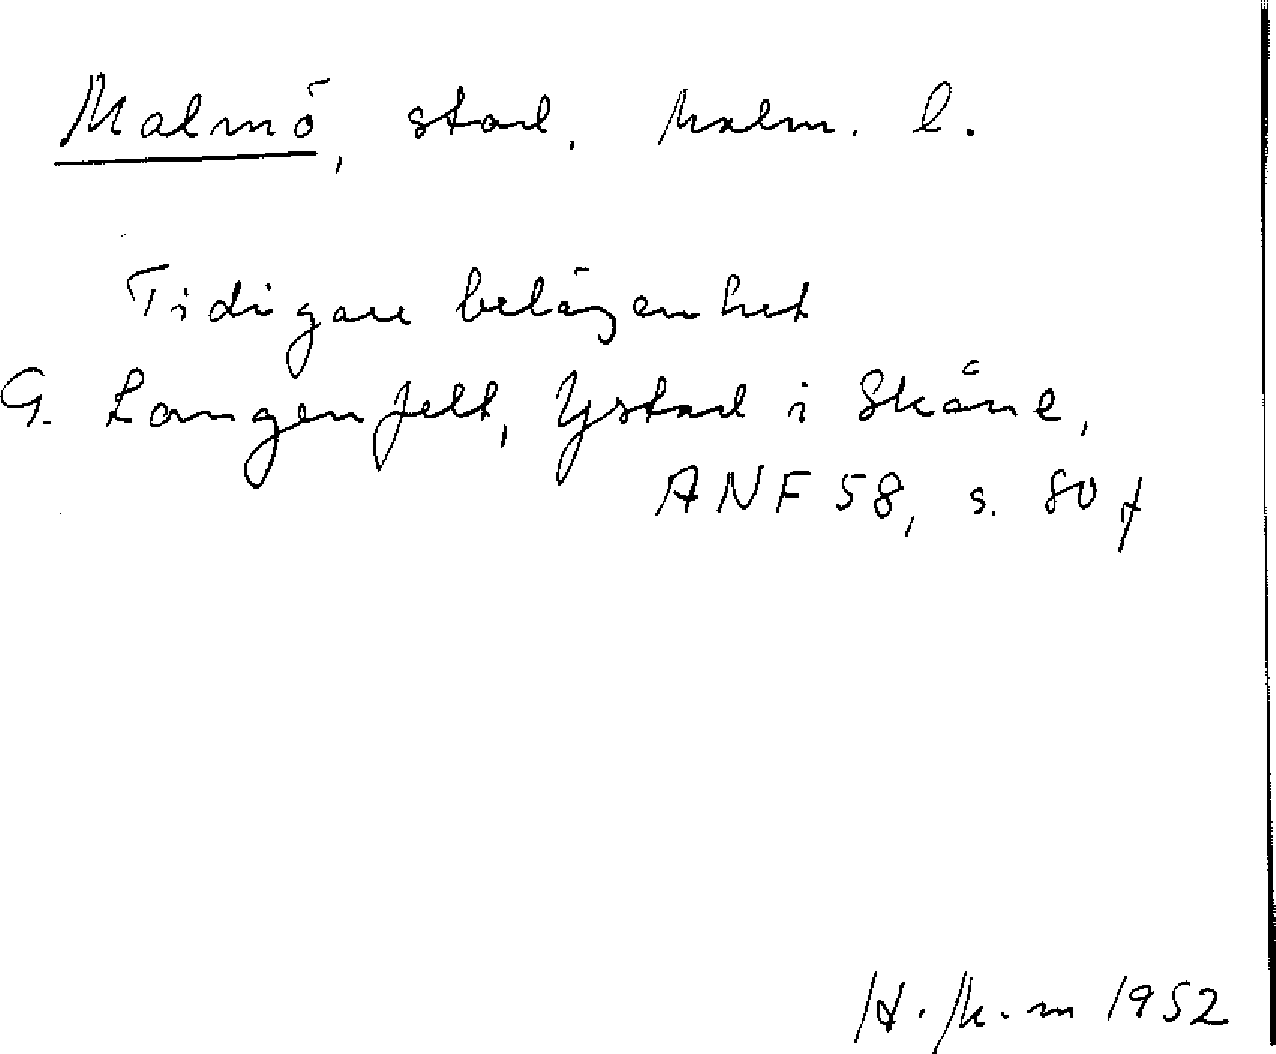 Malmö, stad. Malm. l.
Tidigare belägenhet
G. Langenfelt, Ystad i Skåne,
ANF 58, s. 80 f
H. M.-m 1952